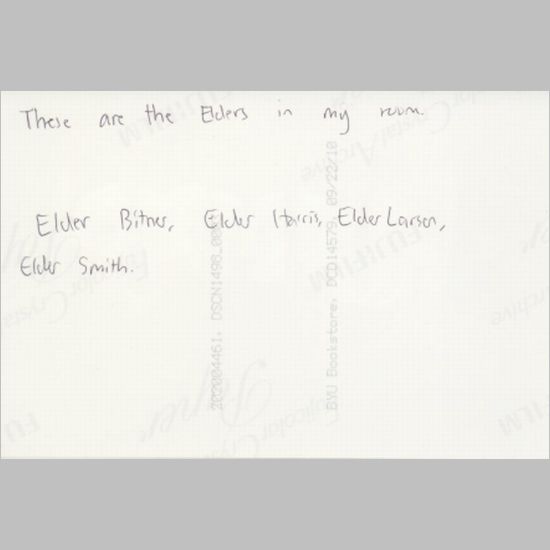 These are the Elders in my room.
Elder Bitner, Elder Harris, Elder Larsen,
Elder Smith.
202004461, DSCN1498.
BYU Bookstore, 09/22/10
FUJIFILM
FUJIFILM
Paper